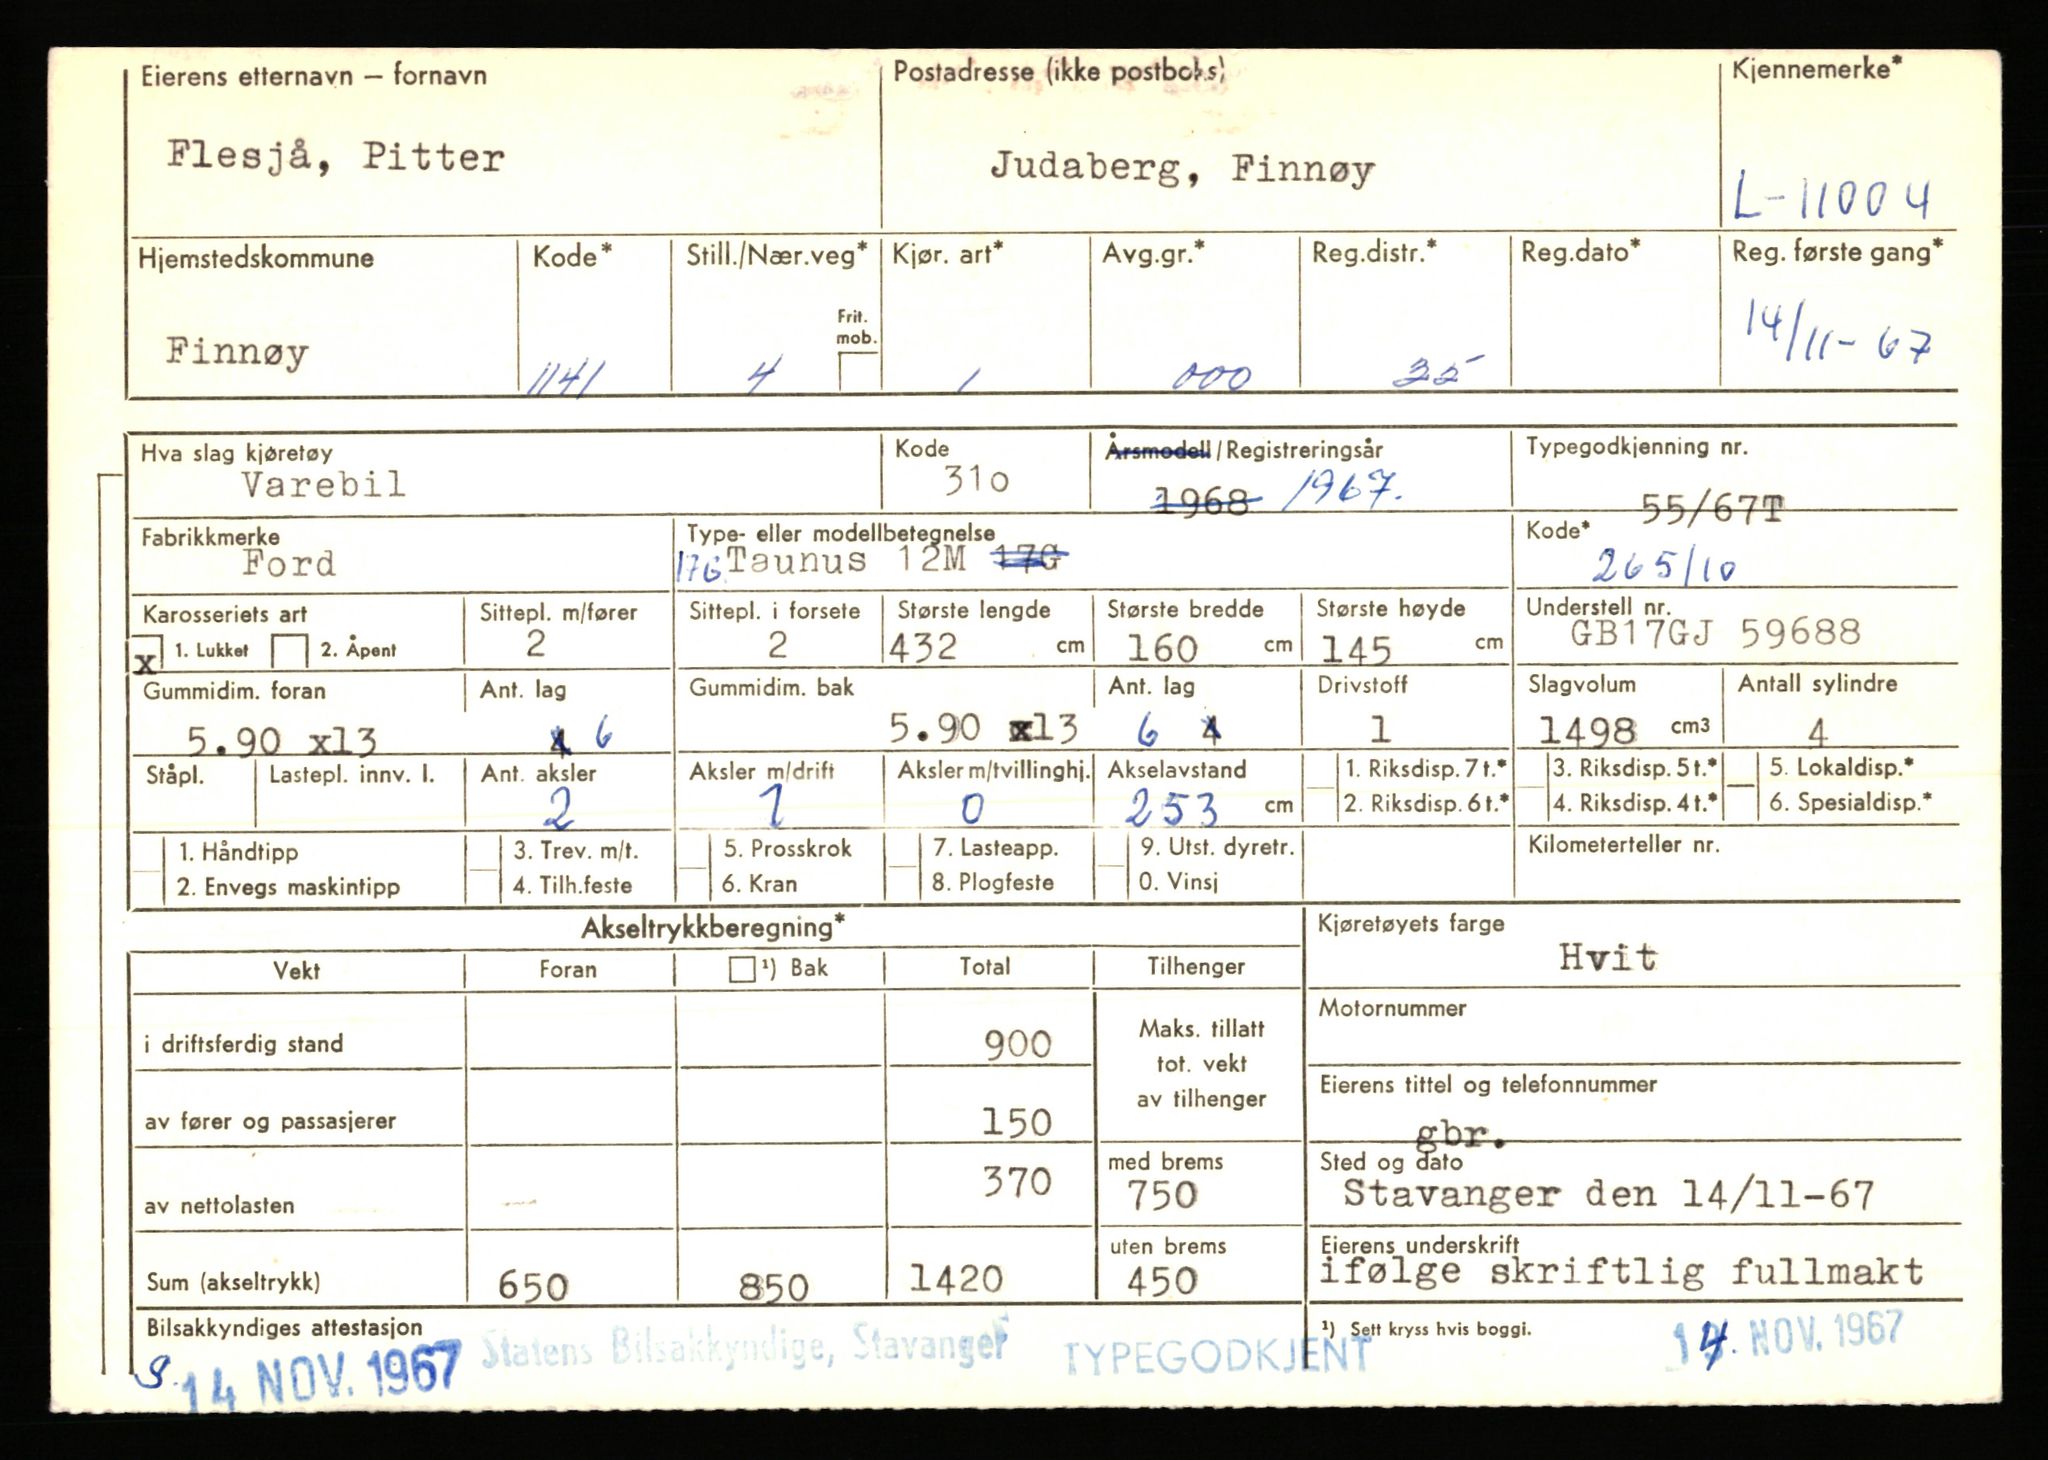 Eierens etternavn – fornavn
Postadresse (ikke postboks)
Kjennemerke*
Flesjå, Pitter
Judaberg, Finnøy
L-11004
Hjemstedskommune
Kode*
Still./Nær.veg*
Kjør. art*
Avg.gr.*
Reg.distr.*
Reg.dato*
Reg. første gang*
Frit. mob.
Finnøy
1141
4
1
000
35
14/11-67
Hva slag kjøretøy
Kode
Årsmodell/Registreringsår
Typegodkjenning nr.
Varebil
310
1968 1967.
55/67T
Fabrikkmerke
Type- eller modellbetegnelse
Kode*
Ford
17G Taunus 12M 17G
265/10
Karosseriets art
Sittepl. m/fører
Sittepl. i forsete
Største lengde
Største bredde
Største høyde
Understell nr.
x 1. Lukket 2. Åpent
2
2
432 cm
160 cm
145 cm
GB17GJ 59688
Gummidim. foran
Ant. lag
Gummidim. bak
Ant. lag
Drivstoff
Slagvolum
Antall sylindre
5.90 x13
4 6
5.90 x13
6 4
1
1498 cm3
4
Ståpl.
Lastepl. innv. l.
Ant. aksler
Aksler m/drift
Aksler m/tvillinghj.
Akselavstand
1. Riksdisp. 7 t.*
3. Riksdisp. 5 t.*
5. Lokaldisp.*
2
1
0
253 cm
2. Riksdisp. 6 t.*
4. Riksdisp. 4 t.*
6. Spesialdisp.*
1. Håndtipp
3. Trev. m/t.
5. Prosskrok
7. Lasteapp.
9. Utst. dyretr.
Kilometerteller nr.
2. Envegs maskintipp
4. Tilh.feste
6. Kran
8. Plogfeste
0. Vinsj
Akseltrykkberegning*
Kjøretøyets farge
Hvit
Vekt
Foran
¹) Bak
Total
Tilhenger
Motornummer
i driftsferdig stand
900
Maks. tillatt
tot. vekt
av tilhenger
Eierens tittel og telefonnummer
av fører og passasjerer
150
gbr.
med brems
Sted og dato
av nettolasten
370
750
Stavanger den 14/11-67
uten brems
Eierens underskrift
Sum (akseltrykk)
650
850
1420
450
ifølge skriftlig fullmakt
Bilsakkyndiges attestasjon
¹) Sett kryss hvis boggi.
14 NOV. 1967
Statens Bilsakkyndige, Stavanger
TYPEGODKJENT
14. NOV. 1967